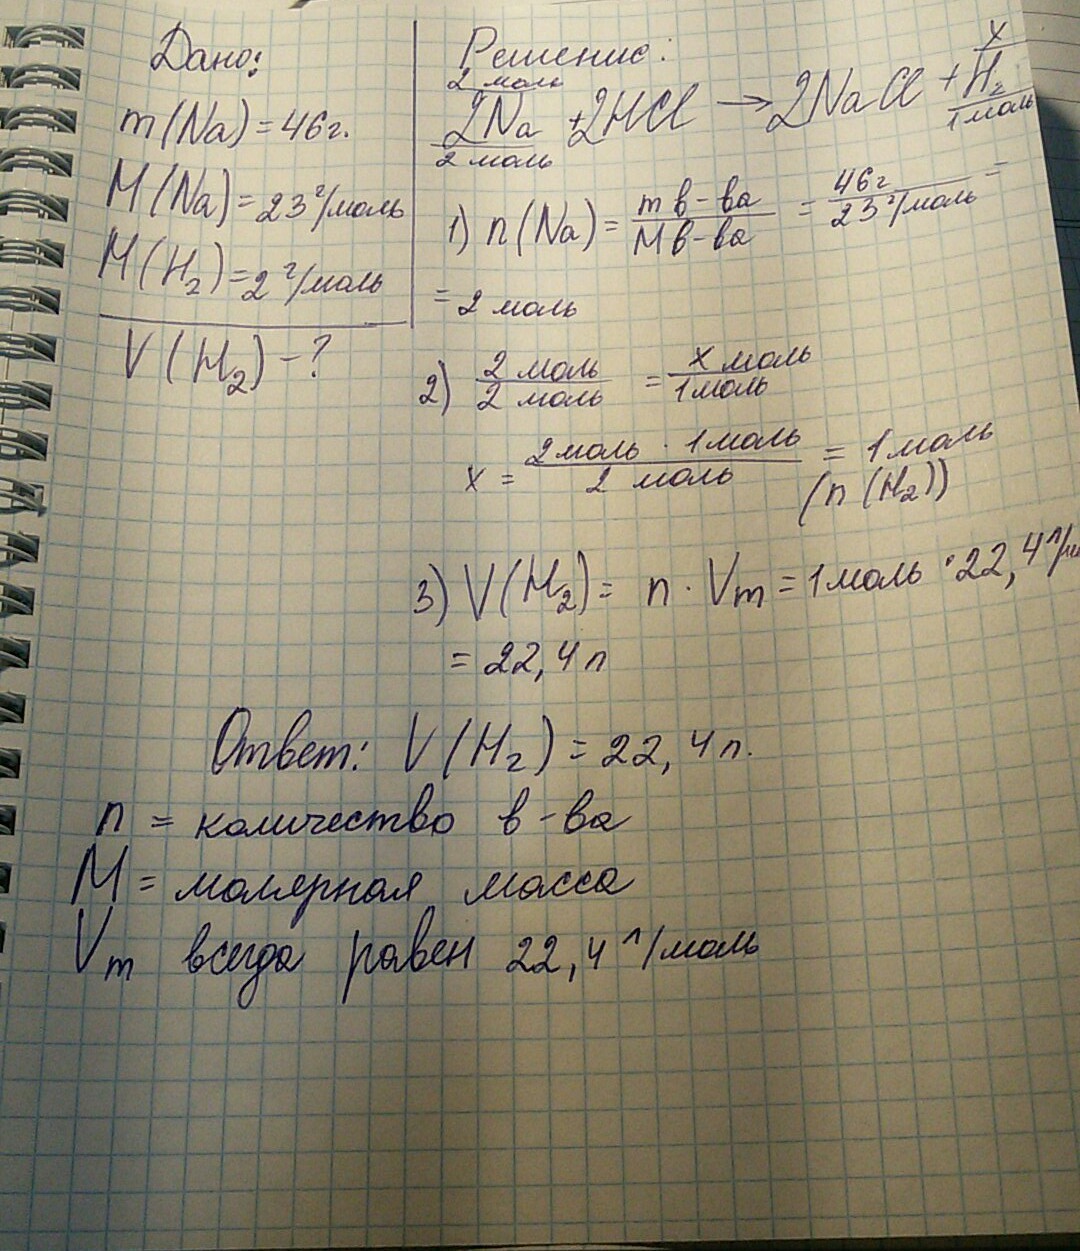 Дано:
m(Na) = 46г.
M(Na) = 23 г/моль
M(H₂) = 2 г/моль
V(H₂) - ?
Решение:
2 моль x
2Na + 2HCl → 2NaCl + H₂
2 моль 1 моль
1) n(Na) = m в-ва / M в-ва = 46г / 23 г/моль =
= 2 моль
2) 2 моль / 2 моль = x моль / 1 моль
x = 2 моль · 1 моль / 2 моль = 1 моль
(n(H₂))
3) V(H₂) = n · Vm = 1 моль · 22,4 л/
= 22,4 л
Ответ: V(H₂) = 22,4 л.
n = количество в-ва
M = молярная масса
Vm всегда равен 22,4 л/моль